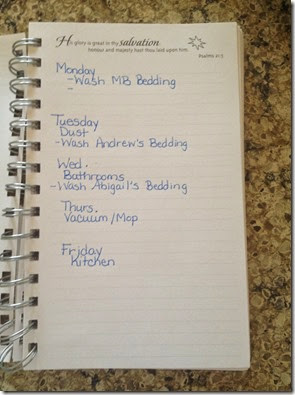 His glory is great in thy salvation
honour and majesty hast thou laid upon him.
PSALMS 21:5
Monday
-Wash MB Bedding
-
Tuesday
Dust
-Wash Andrew's Bedding
Wed.
Bathrooms
-Wash Abigail's Bedding
Thurs.
Vacuum/Mop
Friday
Kitchen